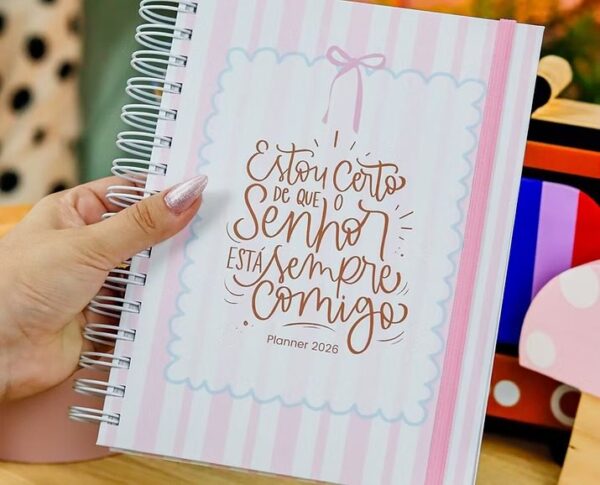 Estou Certo
DE QUE O
Senhor
ESTÁ Sempre
Comigo
Planner 2026